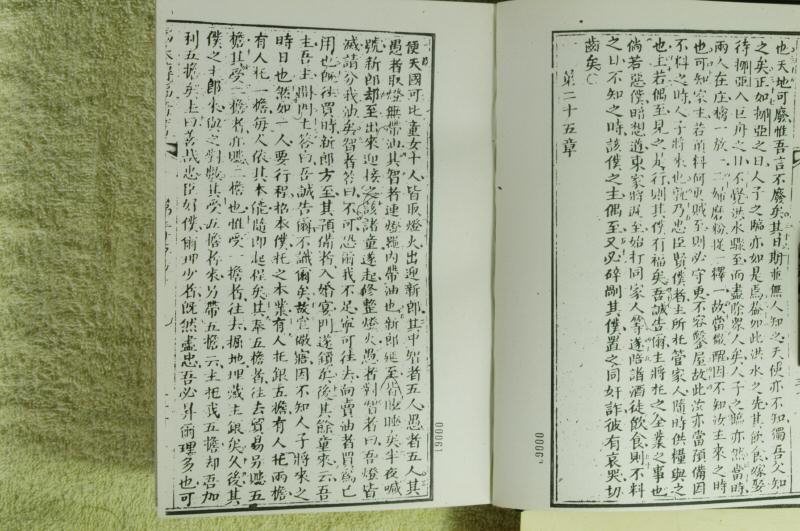 也天地可廢惟吾言不廢矣其日期並無人知之天使亦不知獨吾父知
之矣正如挪亞之日人子之臨亦如是焉葢如此洪水之先其飲食嫁娶
待挪亞入巨舟之日不覺洪水驟至而盡除眾人矣人子之臨亦然當時
兩人在庄榜一放一二婦磨粉從一釋一故當儆醒因不知汝主來之時
也可知家主若前料何更賊至則必守更不容鑿屋故此汝亦當預備因
不料之時人子將來也孰乃忠臣賢僕者主所托管家人隨時供糧與之
也主若偶至見之是行則其僕有福矣吾誠告爾主將托之全業之事也
倘若惡僕暗想道東家將遲至始打同家人等遂陪諸酒徒飲食則不料
之日不知之時該僕之主偶至又必碎剮其僕置之同奸詐彼有哀哭切
齒矣
第二十五章
便天國可比童女十人皆取燈火出迎新郎其中智者五人愚者五人其
愚者取燈無帶油其智者連燈器內帶油也新郎延至皆睡矣半夜喊
號新郎却至出來迎接之該諸童遂起修整燈火愚者對智者曰吾燈皆
滅請分我油矣智者答曰不可恐爾我不足寧可往去向賣油者買為己
用也既往買時新郎方至其預備者入婚宴門遂鎖矣後其餘童來云吾
主吾主開門主答曰吾誠告爾不識爾矣故宜儆寤因不知人子將來之
時日也然如一人要行程招本僕托之本業有人托銀五擔有人托兩擔
有人托一擔每人依其本能隨即起程矣其奉五擔者往去貿易另賺五
擔其受二擔者亦賺二擔也惟受一擔者往去掘地埋藏主銀矣久後其
僕之主郎來與之對數其受五擔者來另帶五擔云主托我五擔却吾加
利五擔矣主曰善哉忠臣好僕爾理少者既然盡忠吾必昇爾理多也可
00061